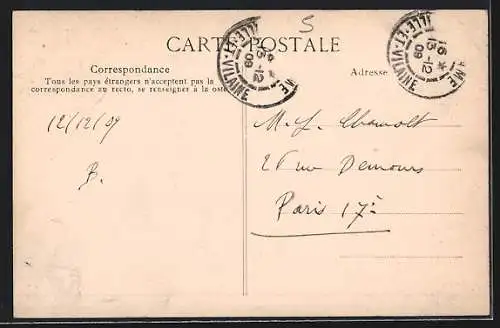 5
CARTE POSTALE
ILLE-ET-VILAINE
13-12
09
ILLE-ET-VILAINE
16 *
13-12
09
Correspondance
Tous les pays étrangers n'acceptent pas la
correspondance au recto, se renseigner à la poste
Adresse
12/12/09
B.
26 rue Demours
Paris 17e